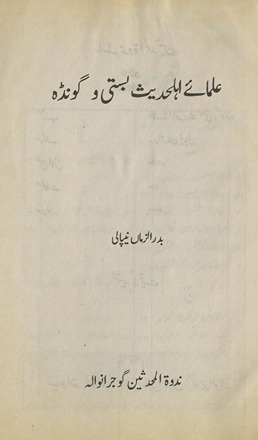 علمائے اہلحدیث بستی و گونڈہ
بدر الزماں نیپالی
ندوۃ المحدثین گوجرانوالہ